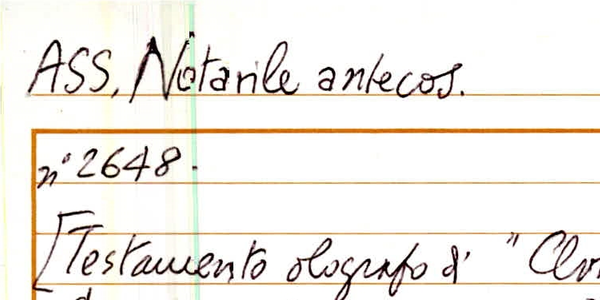 ASS, Notarile antecos.
n° 2648.
[Testamento olografo di "